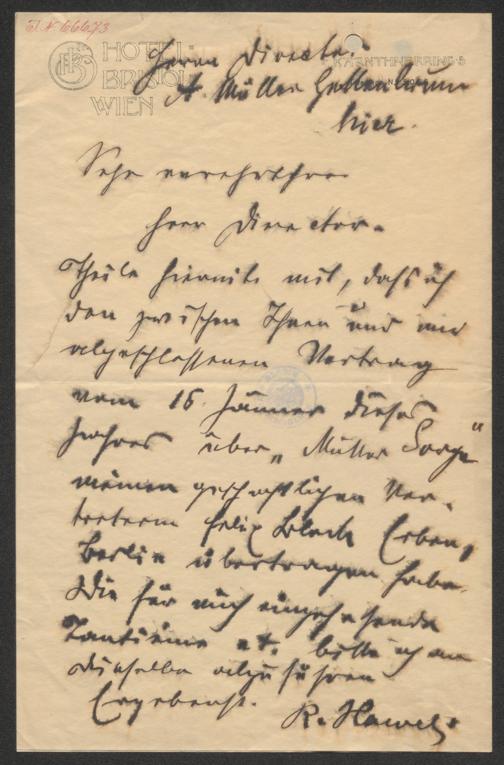 I.N. 66673
HOTEL
BRISTOL
WIEN
KÄRNTHNERRING 5
Herrn Director
A. Müller Guttenbrunn
hier.
Sehr verehrter
Herr Director.
Theile hiermit mit, dass ich
den zwischen Ihnen und mir
abgeschlossenen Vertrag
vom 16. Jänner dieses
Jahres über „Mutter Sorge“
meinen geschäftlichen Ver-
tretern Felix Bloch Erben,
Berlin übertragen habe.
Die für mich eingehende
Tantième etc. bitte ich an
dieselben abzuführen
Ergebenst.
R. Hawel